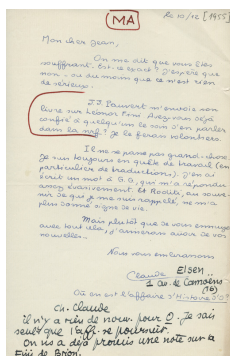 MA
Le 10/12 [1955]
Mon cher Jean,
On me dit que vous êtes
souffrant. Est-ce exact ? J'espère que
non - ou du moins que ce n'est rien
de sérieux.
J.J. Pauvert m'envoie son
livre sur Leonor Fini. Avez-vous déjà
confié à quelqu'un le soin d'en parler
dans la nrf ? Je le ferais volontiers.
Il ne se passe pas grand-chose.
Je suis toujours en quête de travail (en
particulier de traductions). J'en ai
écrit un mot à G.G., qui m'a répondu
assez évasivement. Et Roditi, au souve-
nir de qui je me suis rappelé, ne m'a
plus donné signe de vie.
Mais plutôt que de vous ennuyer
avec tout cela, j'aimerais avoir de vos
nouvelles.
Nous vous embrassons
Claude ELSEN
1 av. de Camoëns
(16)
Où en est l'affaire d'Histoire d'O ?
Ch. Claude
il n'y a rien de nouv. pour O. Je sais
seult que l'aff. se poursuit.
On ns a déjà promis une note sur le
Fini de Brion.